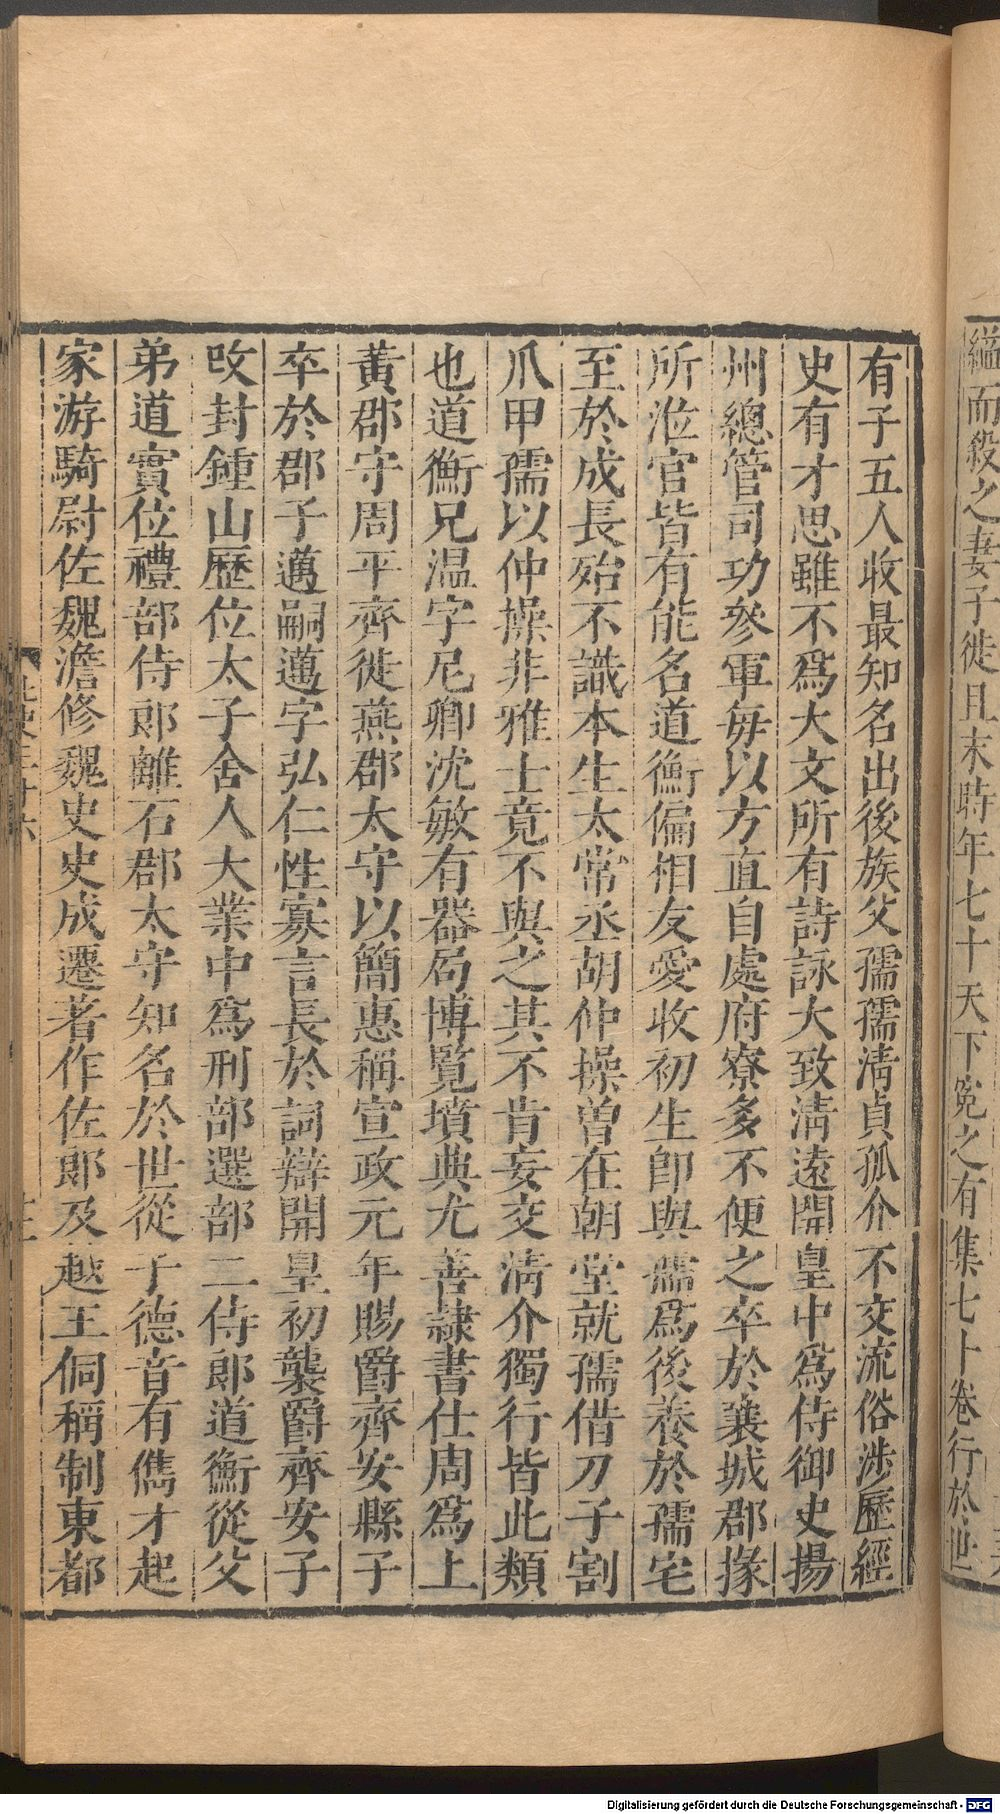 縊而殺之妻子徙且末時年七十天下冤之有集七十卷行於世
有子五人收最知名出後族父孺孺淸貞孤介不交流俗涉歷經
史有才思雖不爲大文所有詩詠大致淸遠開皇中爲侍御史揚
州總管司功參軍每以方直自處府寮多不便之卒於襄城郡掾
所涖官皆有能名道衡偏相友愛收初生卽與孺爲後養於孺宅
至於成長殆不識本生太常丞胡仲操曾在朝堂就孺借刀子割
爪甲孺以仲操非雅士竟不與之其不肯妄交淸介獨行皆此類
也道衡兄溫字尼卿沈敏有器局博覽墳典尤善隸書仕周爲上
黃郡守周平齊徙燕郡太守以簡惠稱宣政元年賜爵齊安縣子
卒於郡子邁嗣邁字弘仁性寡言長於詞辯開皇初襲爵齊安子
改封鍾山歷位太子舍人大業中爲刑部選部二侍郎道衡從父
弟道實位禮部侍郎離石郡太守知名於世從子德音有儁才起
家游騎尉佐魏澹修魏史史成遷著作佐郎及越王侗稱制東都
Digitalisierung gefördert durch die Deutsche Forschungsgemeinschaft - DFG